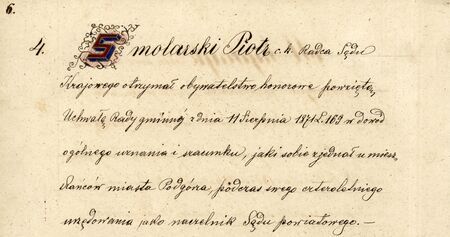 6.
4. Smolarski Piotr c. k. Radca Sądu
Krajowego otrzymał obywatelstwo honorowe powziętą
Uchwałą Rady gminnej z dnia 11 Sierpnia 1871 L. 169 w dowod
ogólnego uznania i szacunku, jaki sobie zjednał u miesz-
kańców miasta Podgórza, podczas swego czteroletniego
urzędowania jako naczelnik Sądu powiatowego. —